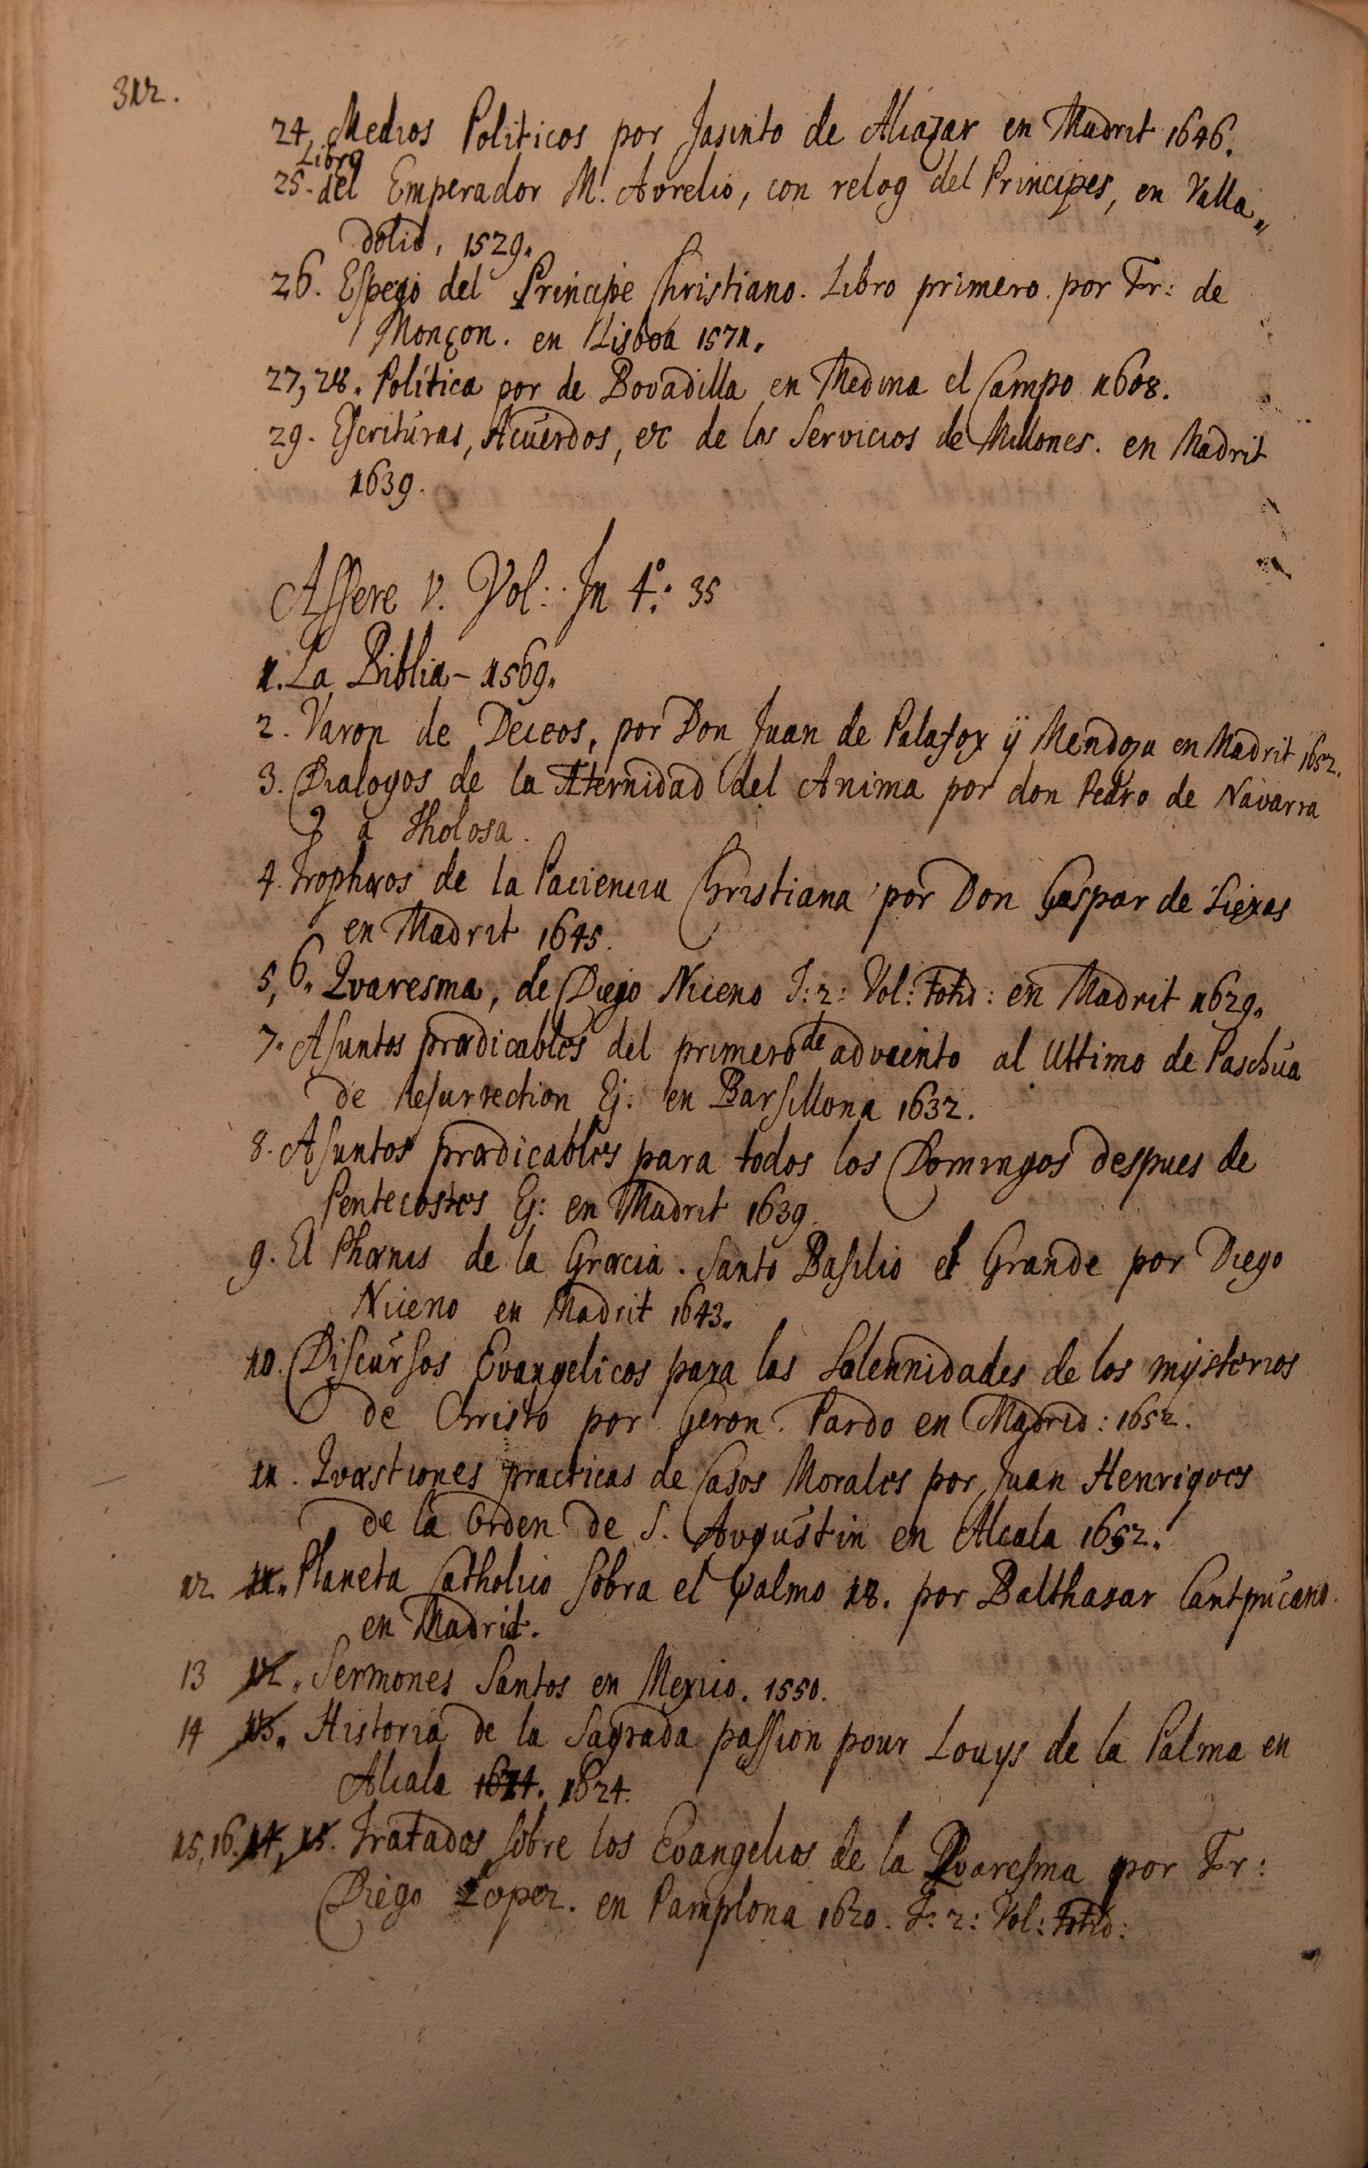 312.
24, Medios Politicos por Jasinto de Aliazar en Madrit 1646.
Libro
25. del Emperador M. Avrelio, con relog del Principes, en Valla„
dolid, 1529.
26. Espego del Principe Christiano. Libro primero. por Fr: de
Monçon. en Lisboa 1571.
27, 28. Política por de Bovadilla en Medina el Campo 1608.
29. Escritúras, Acúerdos, etc de los Servicios de Millones. en Madrit
1639.
Assere V. Vol: In 4°: 35
1. La Biblia - 1569.
2. Varon de Deceos, por Don Juan de Palafox ÿ Mendoza en Madrit 1652.
3. Dialogos de la Æternidad del Anima por don Pedro de Navarra
a Tholosa.
4. Trophæos de la Paciencia Christiana por Don Gaspar de Siexas
en Madrit 1645.
5, 6. Qvaresma, de Diego Niceno T: 2: Vol: totid: en Madrit 1629.
7. Asuntos prædicables del primero de advæinto al Ultimo de Paschúa
de Resurrection Ej: en Barsillona 1632.
8. Asuntos prædicables para todos los Domingos despues de
Pentecostes Ej: en Madrit 1639.
9. El Phænis de la Græcia. Santo Basilio el Grande por Diego
Niceno en Madrit 1643.
10. Discúrsos Evangelicos para las Solennidades de los mÿsterios
de Christo por Geron. Pardo en Madrid: 1652.
11. Qvæstiones practicas de Casos Morales por Juan Henriqves
de la Orden de S. Avgústin en Alcala 1652.
12 11. Planeta Catholico sobra el Psalmo 18. por Balthasar Cantpúcano.
en Madrit.
13 12. Sermones Santos en Mexico. 1550.
14 13. Historia de la Sagrada passion pour Louys de la Palma en
Alcala 1674. 1624.
15, 16. 14, 15. Tratados sobre los Evangelios de la Qvaresma por Fr:
Diego Lopez. en Pamplona 1620. T: 2: Vol: totid: